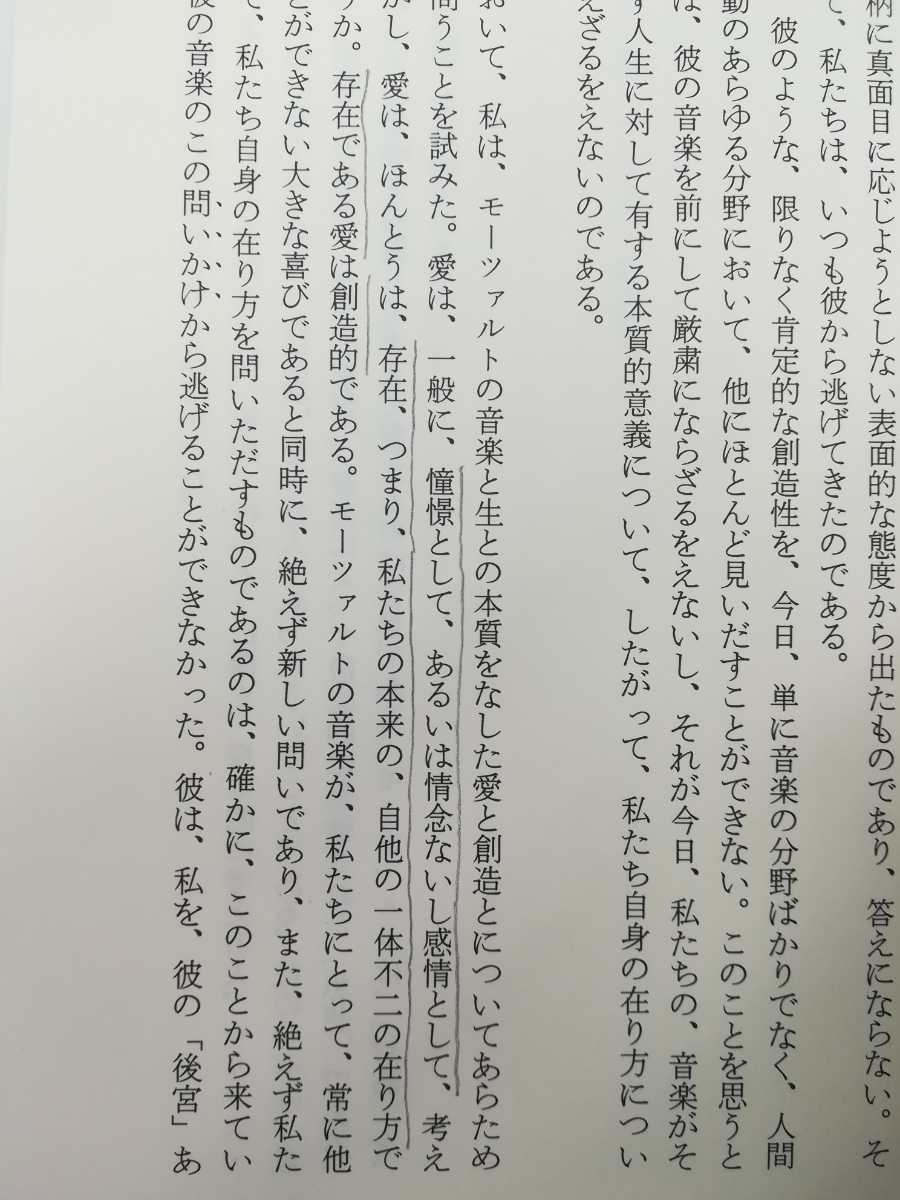 柄に真面目に応じようとしない表面的な態度から出たものであり、答えにならない。そ
て、私たちは、いつも彼から逃げてきたのである。
彼のような、限りなく肯定的な創造性を、今日、単に音楽の分野ばかりでなく、人間
動のあらゆる分野において、他にほとんど見いだすことができない。このことを思うと
は、彼の音楽を前にして厳粛にならざるをえないし、それが今日、私たちの、音楽がそ
す人生に対して有する本質的意義について、したがって、私たち自身の在り方につい
えざるをえないのである。
おいて、私は、モーツァルトの音楽と生との本質をなした愛と創造とについてあらため
問うことを試みた。愛は、一般に、憧憬として、あるいは情念ないし感情として、考え
かし、愛は、ほんとうは、存在、つまり、私たちの本来の、自他の一体不二の在り方で
うか。存在である愛は創造的である。モーツァルトの音楽が、私たちにとって、常に他
とができない大きな喜びであると同時に、絶えず新しい問いであり、また、絶えず私た
て、私たち自身の在り方を問いただすものであるのは、確かに、このことから来てい
彼の音楽のこの問いかけから逃げることができなかった。彼は、私を、彼の「後宮」あ